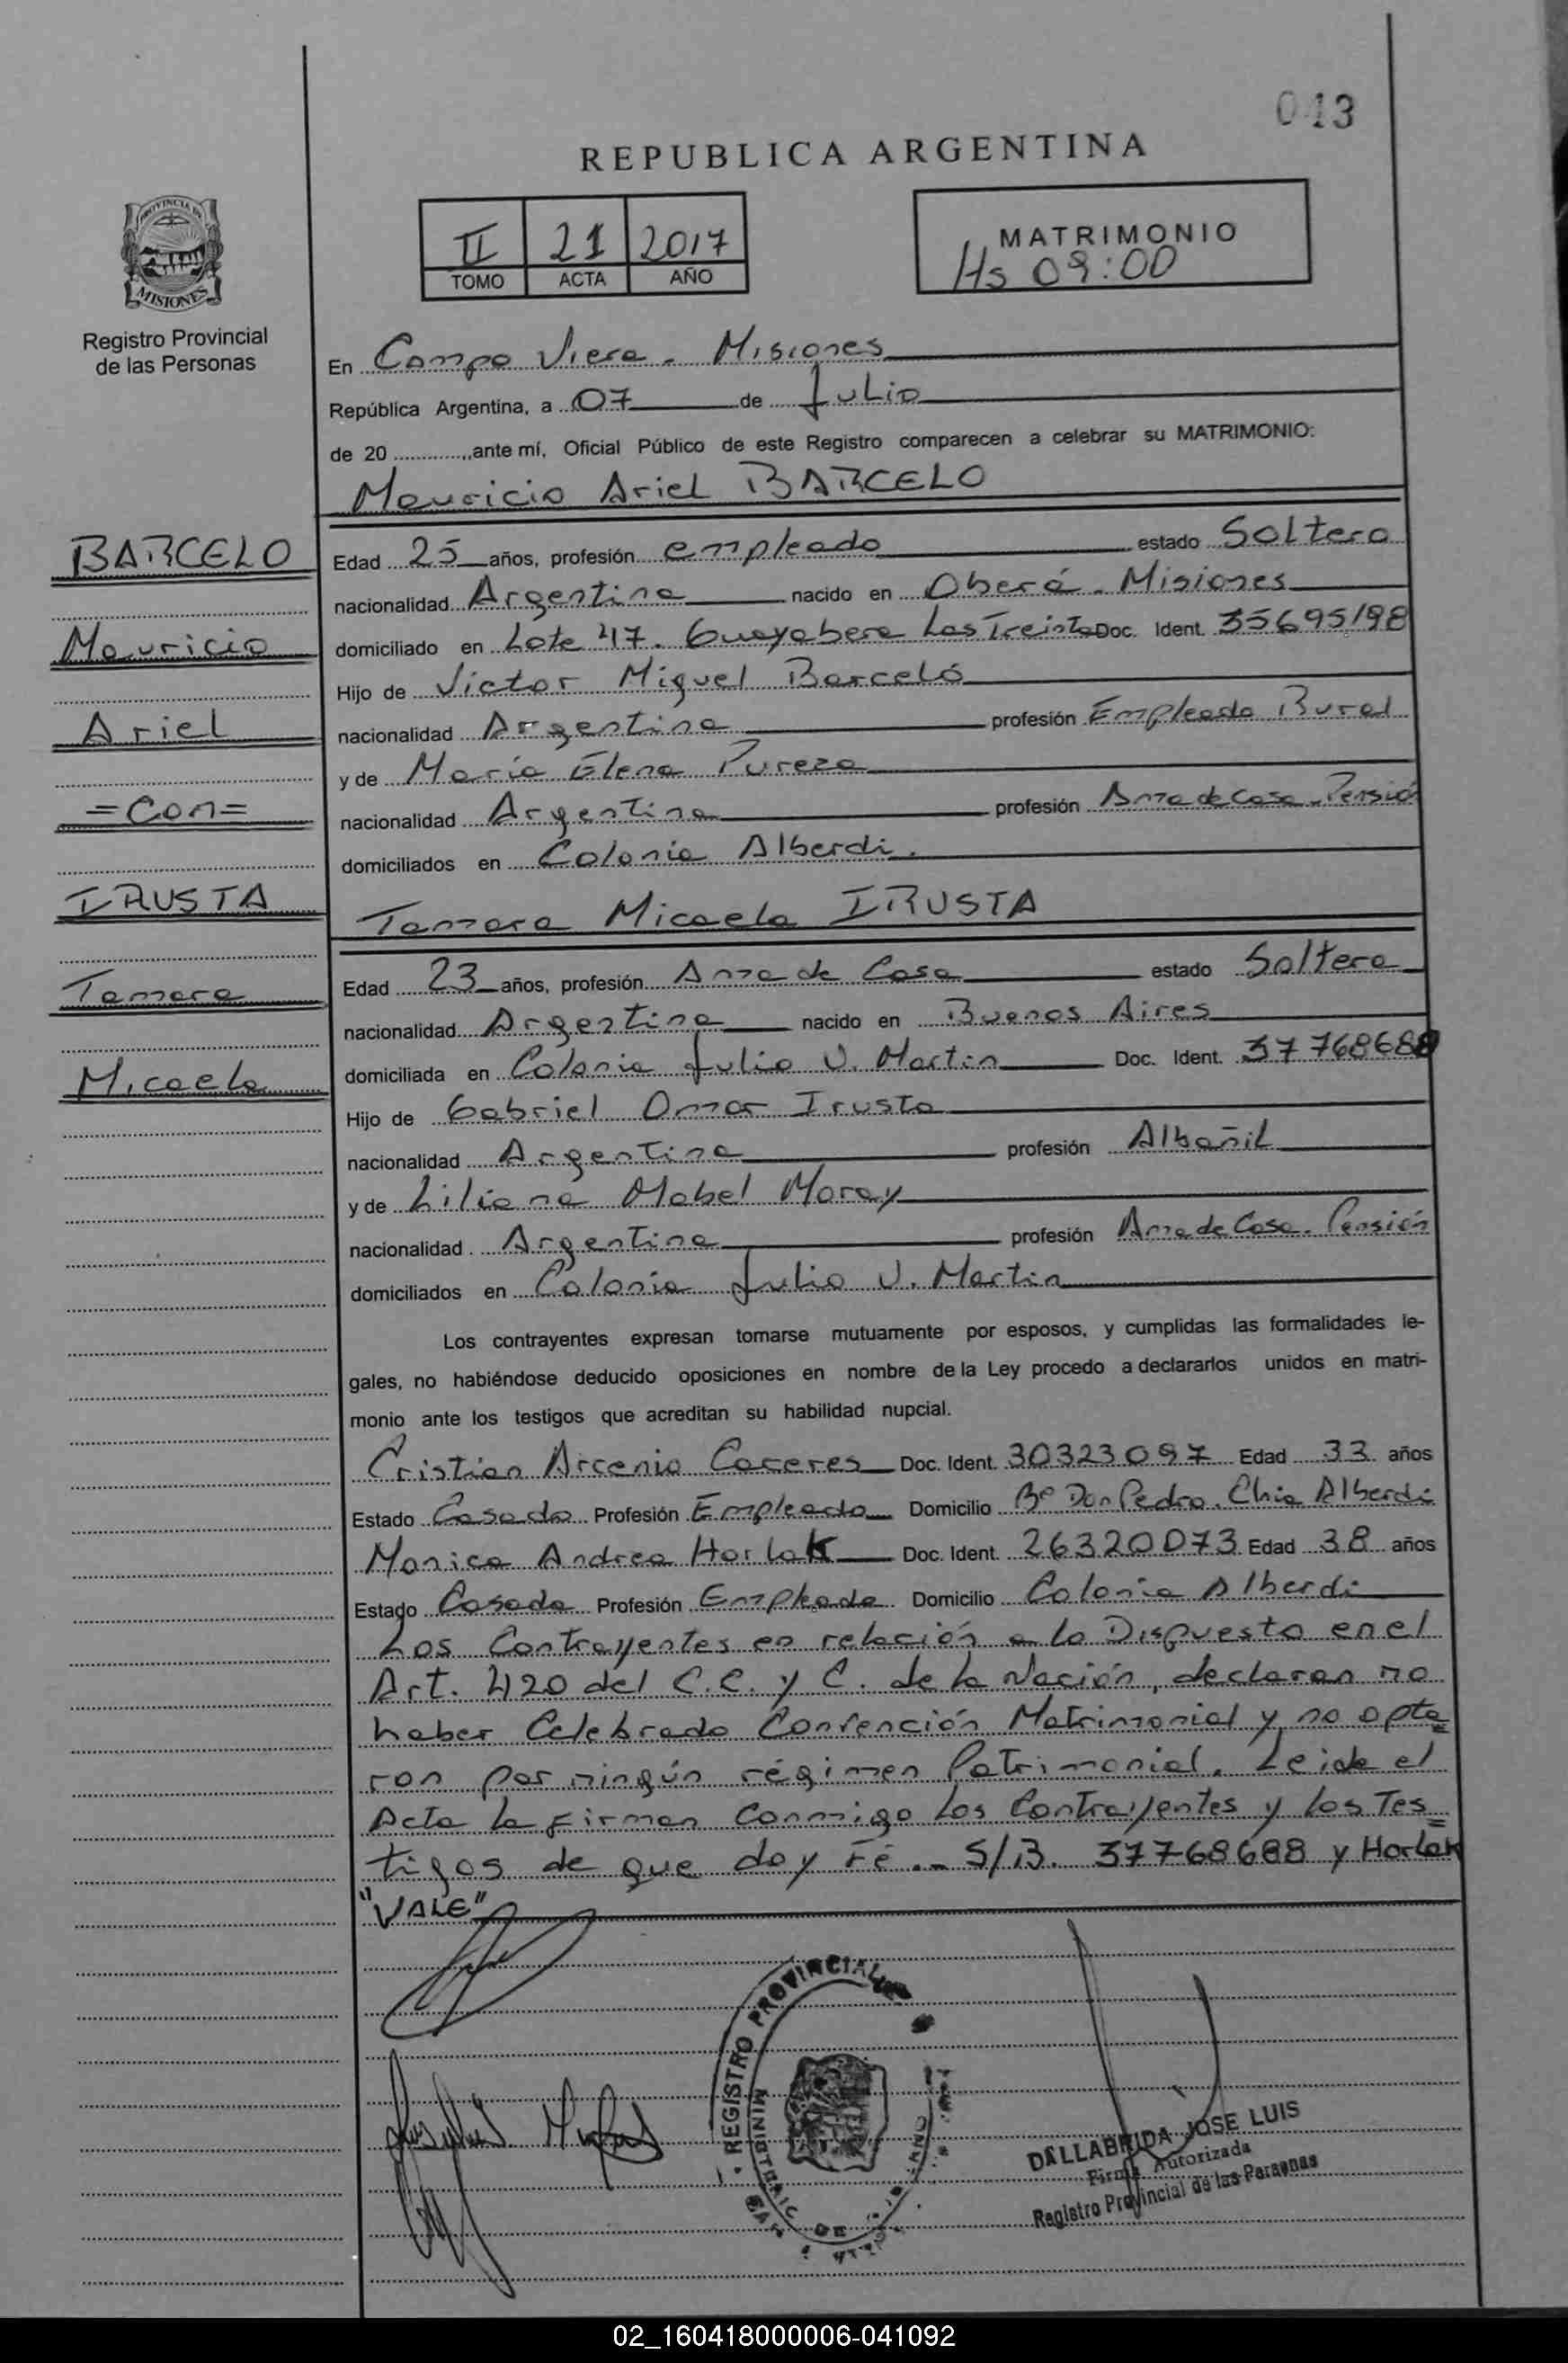 013
REPUBLICA ARGENTINA
PROVINCIA DE
MISIONES
Registro Provincial
de las Personas
II 21 2017
TOMO ACTA AÑO
MATRIMONIO
Hs 09:00
En Campo Viera - Misiones
República Argentina, a 07 de Julio
de 20 ............, ante mí, Oficial Público de este Registro comparecen a celebrar su MATRIMONIO:
Mauricio Ariel BARCELO
BARCELO
Mauricio
Ariel
=Con=
IRUSTA
Tamara
Micaela
Edad 25 años, profesión empleado estado Soltero
nacionalidad Argentina nacido en Oberá - Misiones
domiciliado en Lote 47. Guayabera Las Treinta Doc. Ident. 35695198
Hijo de Victor Miguel Barceló
nacionalidad Argentina profesión Empleado Rural
y de María Elena Pureza
nacionalidad Argentina profesión Ama de Casa - Pensión
domiciliados en Colonia Alberdi.
Tamara Micaela IRUSTA
Edad 23 años, profesión Ama de Casa estado Soltera
nacionalidad Argentina nacido en Buenos Aires
domiciliada en Colonia Julio U. Martin Doc. Ident. 37768688
Hijo de Gabriel Omar Irusta
nacionalidad Argentina profesión Albañil
y de Liliana Mabel Moray
nacionalidad Argentina profesión Ama de Casa. Pensión
domiciliados en Colonia Julio U. Martin
Los contrayentes expresan tomarse mutuamente por esposos, y cumplidas las formalidades le-
gales, no habiéndose deducido oposiciones en nombre de la Ley procedo a declararlos unidos en matri-
monio ante los testigos que acreditan su habilidad nupcial.
Cristian Arcenio Caceres Doc. Ident. 30323097 Edad 33 años
Estado Casado Profesión Empleado Domicilio Bº Don Pedro. Clnia Alberdi
Monica Andrea Horlak Doc. Ident. 26320073 Edad 38 años
Estado Casada Profesión Empleada Domicilio Colonia Alberdi
Los Contrayentes en relación a lo Dispuesto en el
Art. 420 del C.C. y C. de la Nación, declaran no
haber Celebrado Convención Matrimonial y no opta=
ron por ningún régimen Patrimonial. Leida el
Acta la Firman Conmigo los Contrayentes y los Tes=
tigos de que doy Fé.- S/B. 37768688 y Horlak
"VALE"
REGISTRO PROVINCIAL
DALLABRIDA JOSE LUIS
Firma Autorizada
Registro Provincial de las Personas
02_160418000006-041092